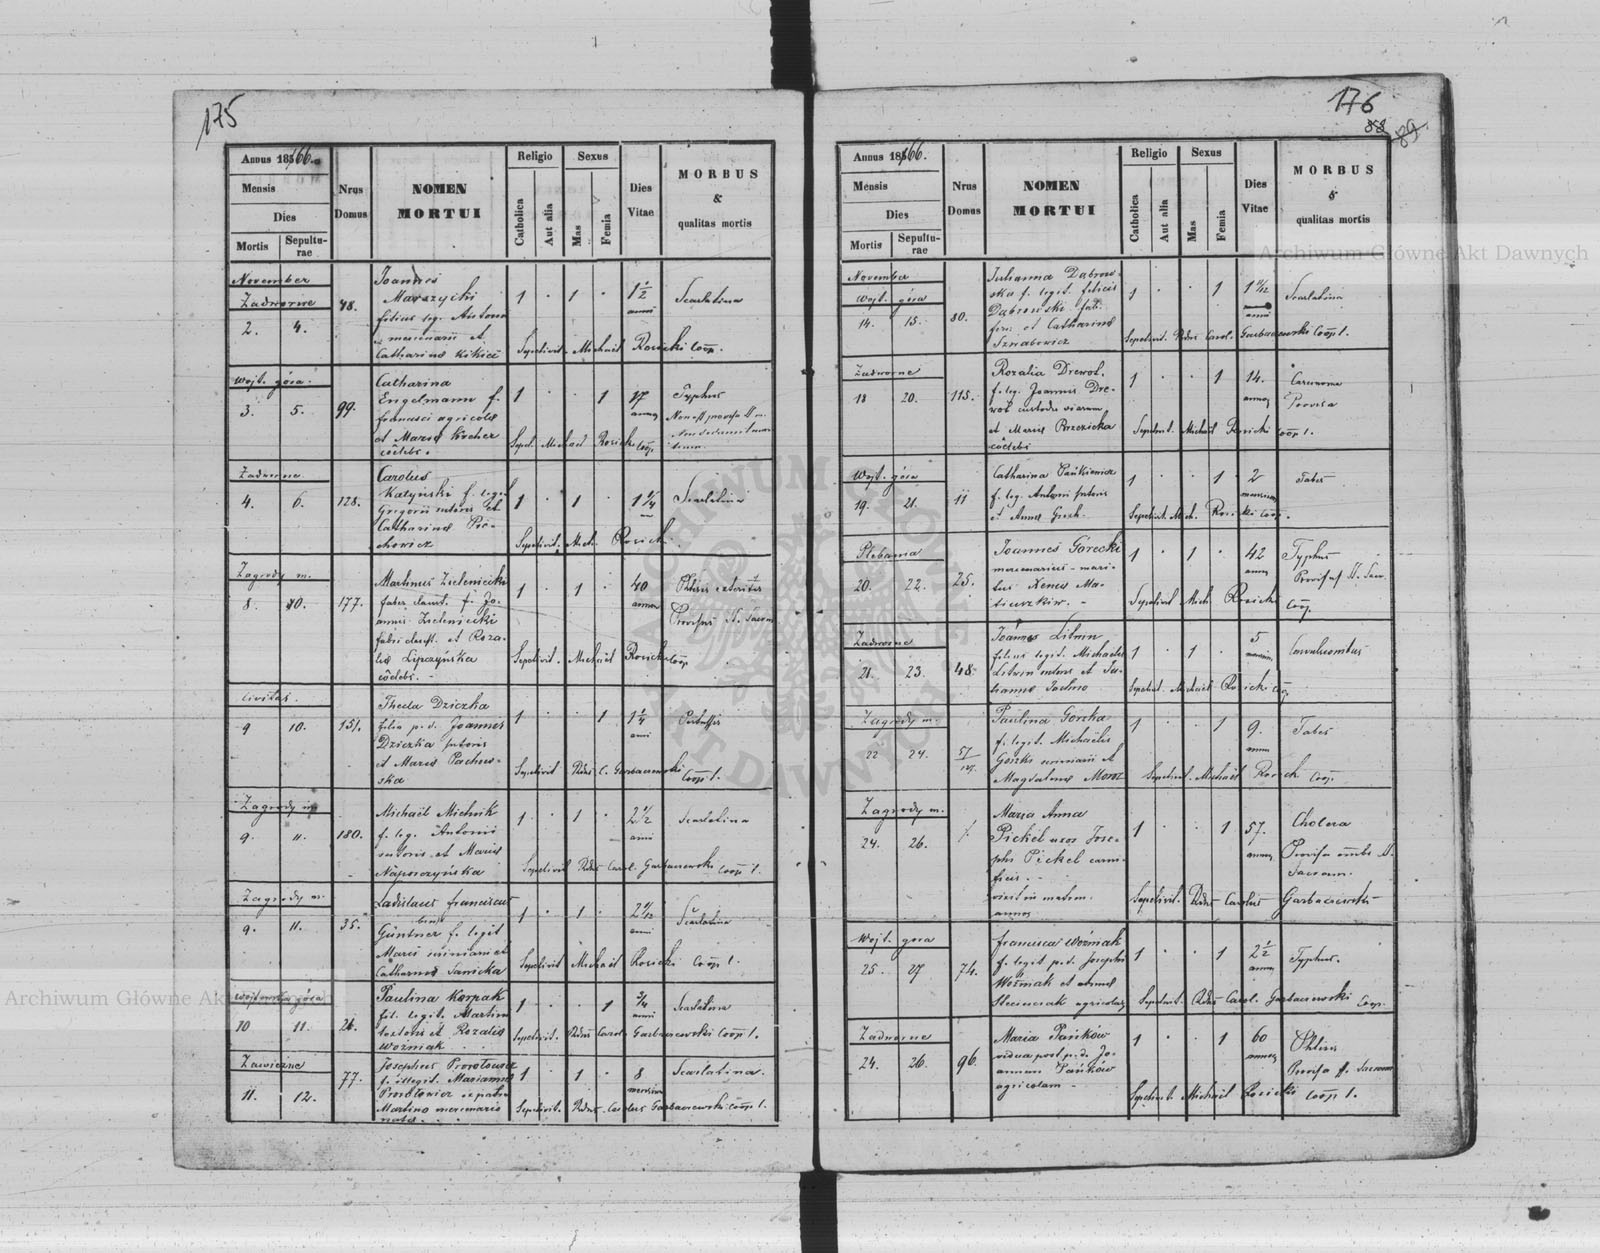 175
Annus 1866.
Mensis
Dies
Mortis
Sepulturae
Nrus Domus
NOMEN MORTUI
Religio
Catholica
Aut alia
Sexus
Mas
Femia
Dies Vitae
MORBUS & qualitas mortis
November
Zadworne
2. 4.
48.
Joannes
Marszycki
filius leg. Antonii
mercenarii et
Catharina Kikicz
1 · 1 ·
1 1/2 anni
Scarlatina
Sepelivit Michael Rosicki Coop.
Wojt. góra.
3. 5.
99.
Catharina
Engelmann f.
francisci agricolae
et Maria Kocher
coelebs.
1 · · 1
17 annor
Typhus
Sepel. Michael Rosicki Coop.
Zadworne
4. 6.
128.
Carolus
Katyński f. legit
Grigorii sutoris et
Catharina
1 · 1
1 1/4
Scarlatina
Sepelivit Mich. Rosicki
Zagrody m.
8. 10.
177.
Martinus Zieleniecki
faber f. Jo-
annis Zieleniecki
fabri et Roza-
lia Lipczyńska
coelebs.
1 · 1 ·
40 annor
Provisus St. Sacram
Sepelivit. Michael Rosicki Coop
Civitas.
9 10.
151.
Thecla Dziczka
filia p. d. Joannes
Dziczka sutoris
et Maria Pachow-
ska
1 · · 1
1 1/4 anni
Pertussis
Sepelivit Rdus C. Garbaczewski Coop 1.
Zagrody m.
9. 11.
180.
Michaël Michnik
f. leg. Antonii
sutoris et Maria
Naporczyńska
1 · 1 ·
2 1/2 anni
Scarlatina
Sepelivit Rdus Carol. Garbaczewski Coop 1.
Zagrody m.
9. 11.
35.
Ladislaus franciscus
Güntner f. legit
Catharina Sanicka
1 · 1 ·
anni
Scarlatina
Sepelivit Michaël Rosicki Coop 1.
Wojtowska góra
10 11.
26.
Paulina Korpak
fil. legit. Martini
textoris et Rozalia
Woźniak
1 · · 1
3/4 anni
Scarlatina
Sepelivit. Rdus Carol Garbaczewski Coop 1.
Zawieżne
11. 12.
77.
Josephus
f. illegit. Marianna
Martino mercenario
nata.
1 · 1 ·
8 mensium
Scarlatina.
Sepelivit. Rdus Carolus Garbaczewski Coop 1.
176
88 89.
Annus 1866.
Mensis
Dies
Mortis
Sepulturae
Nrus Domus
NOMEN MORTUI
Religio
Catholica
Aut alia
Sexus
Mas
Femia
Dies Vitae
MORBUS & qualitas mortis
November
Wojt. góra
14. 15.
80.
Julianna Dąbrow-
ska f. legit. felicis
Dąbrowski
et Catharina
1 · · 1
anni
Scarlatina
Sepelivit. Rdus Carol. Garbaczewski Coop 1.
Zadworne
18 20.
115.
Rozalia Drewot.
f. leg. Joannis Dre-
wot custodis viarum
et Maria Brzezicka
coelebs
1 · · 1
14. annor
Carcinoma
Provisa
Sepelivit. Michaël Rosicki Coop 1.
Wojt. góra
19. 21.
11
Catharina Pańkiewicz
f. leg. Antonii sutoris
et Anna
1 · · 1
2 mensium
Tabes
Sepelivit. Mich. Rosicki Coop.
Plebania
20. 22.
25.
Joannes Górecki
mercenarius - mari-
tus Xenia Ma-
tiuszków.
1 · 1 ·
42 annor
Typhus
Provisus St. Sacr.
Sepelivit Mich Rosicki Coop.
Zadworne
21. 23.
48.
Joannes Litwin
filius legit. Michaelis
Litwin sutoris et Ju-
lianna
1 · 1 ·
5 mensium
Convulsionibus
Sepelivit. Michaël Rosicki Coop
Zagrody m.
22 24.
Paulina Gorzka
f. legit. Michaëlis
Gorzki et
Magdalena Moroz
1 · · 1
9. annor
Tabes
Sepelivit. Michaël Rosicki Coop.
Zagrody m.
24. 26.
Maria Anna
Pickel uxor Jose-
phi Pickel carni-
ficis.
vixit in matrim.
annos
1 · · 1
57. annor
Cholera
Provisa omnib. St.
Sacram.
Sepelivit. Rdus Carolus Garbaczewski
Wojt gora
25. 27
74.
francisca Woźniak
f. legit p. d. Josephi
Woźniak et
agricolae
1 · · 1
2 1/2 annor
Typhus.
Sepelivit. Rdus Carol. Garbaczewski Coop.
Zadworne
24. 26.
96.
Maria Pańków
vidua post p. d. Jo-
annem Pańków
agricolam -
1 · · 1
60 annor
Phtisis
Provisa St. Sacram
Sepelivit. Michaël Rosicki Coop 1.
Archiwum Główne Akt Dawnych
ARCHIWUM GŁÓWNE AKT DAWNYCH